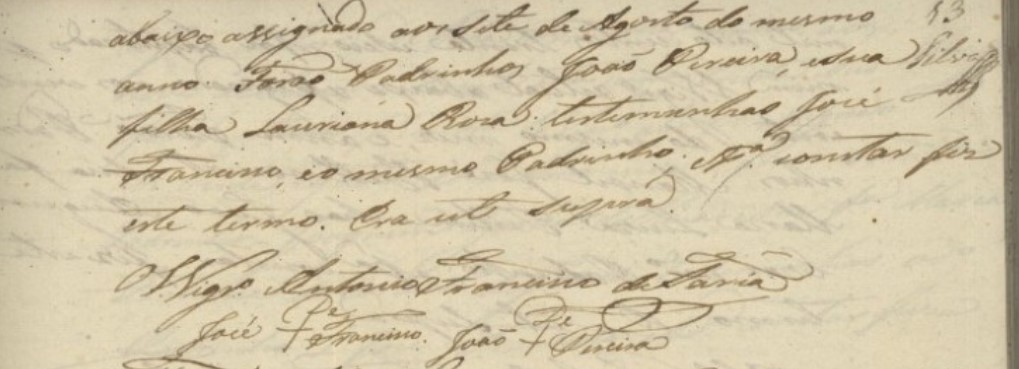 abaixo assignado aos sete de Agosto do mesmo 53
anno. Forão Padrinhos João Pereira, e sua Silva
filha Lauriana Rosa. testemunhas José
Francino, e o mesmo Padrinho. Pª constar fiz
este termo. Era ut supra.
O Vigrº Antonio Francino de Faria
José + Francino. João + Pereira